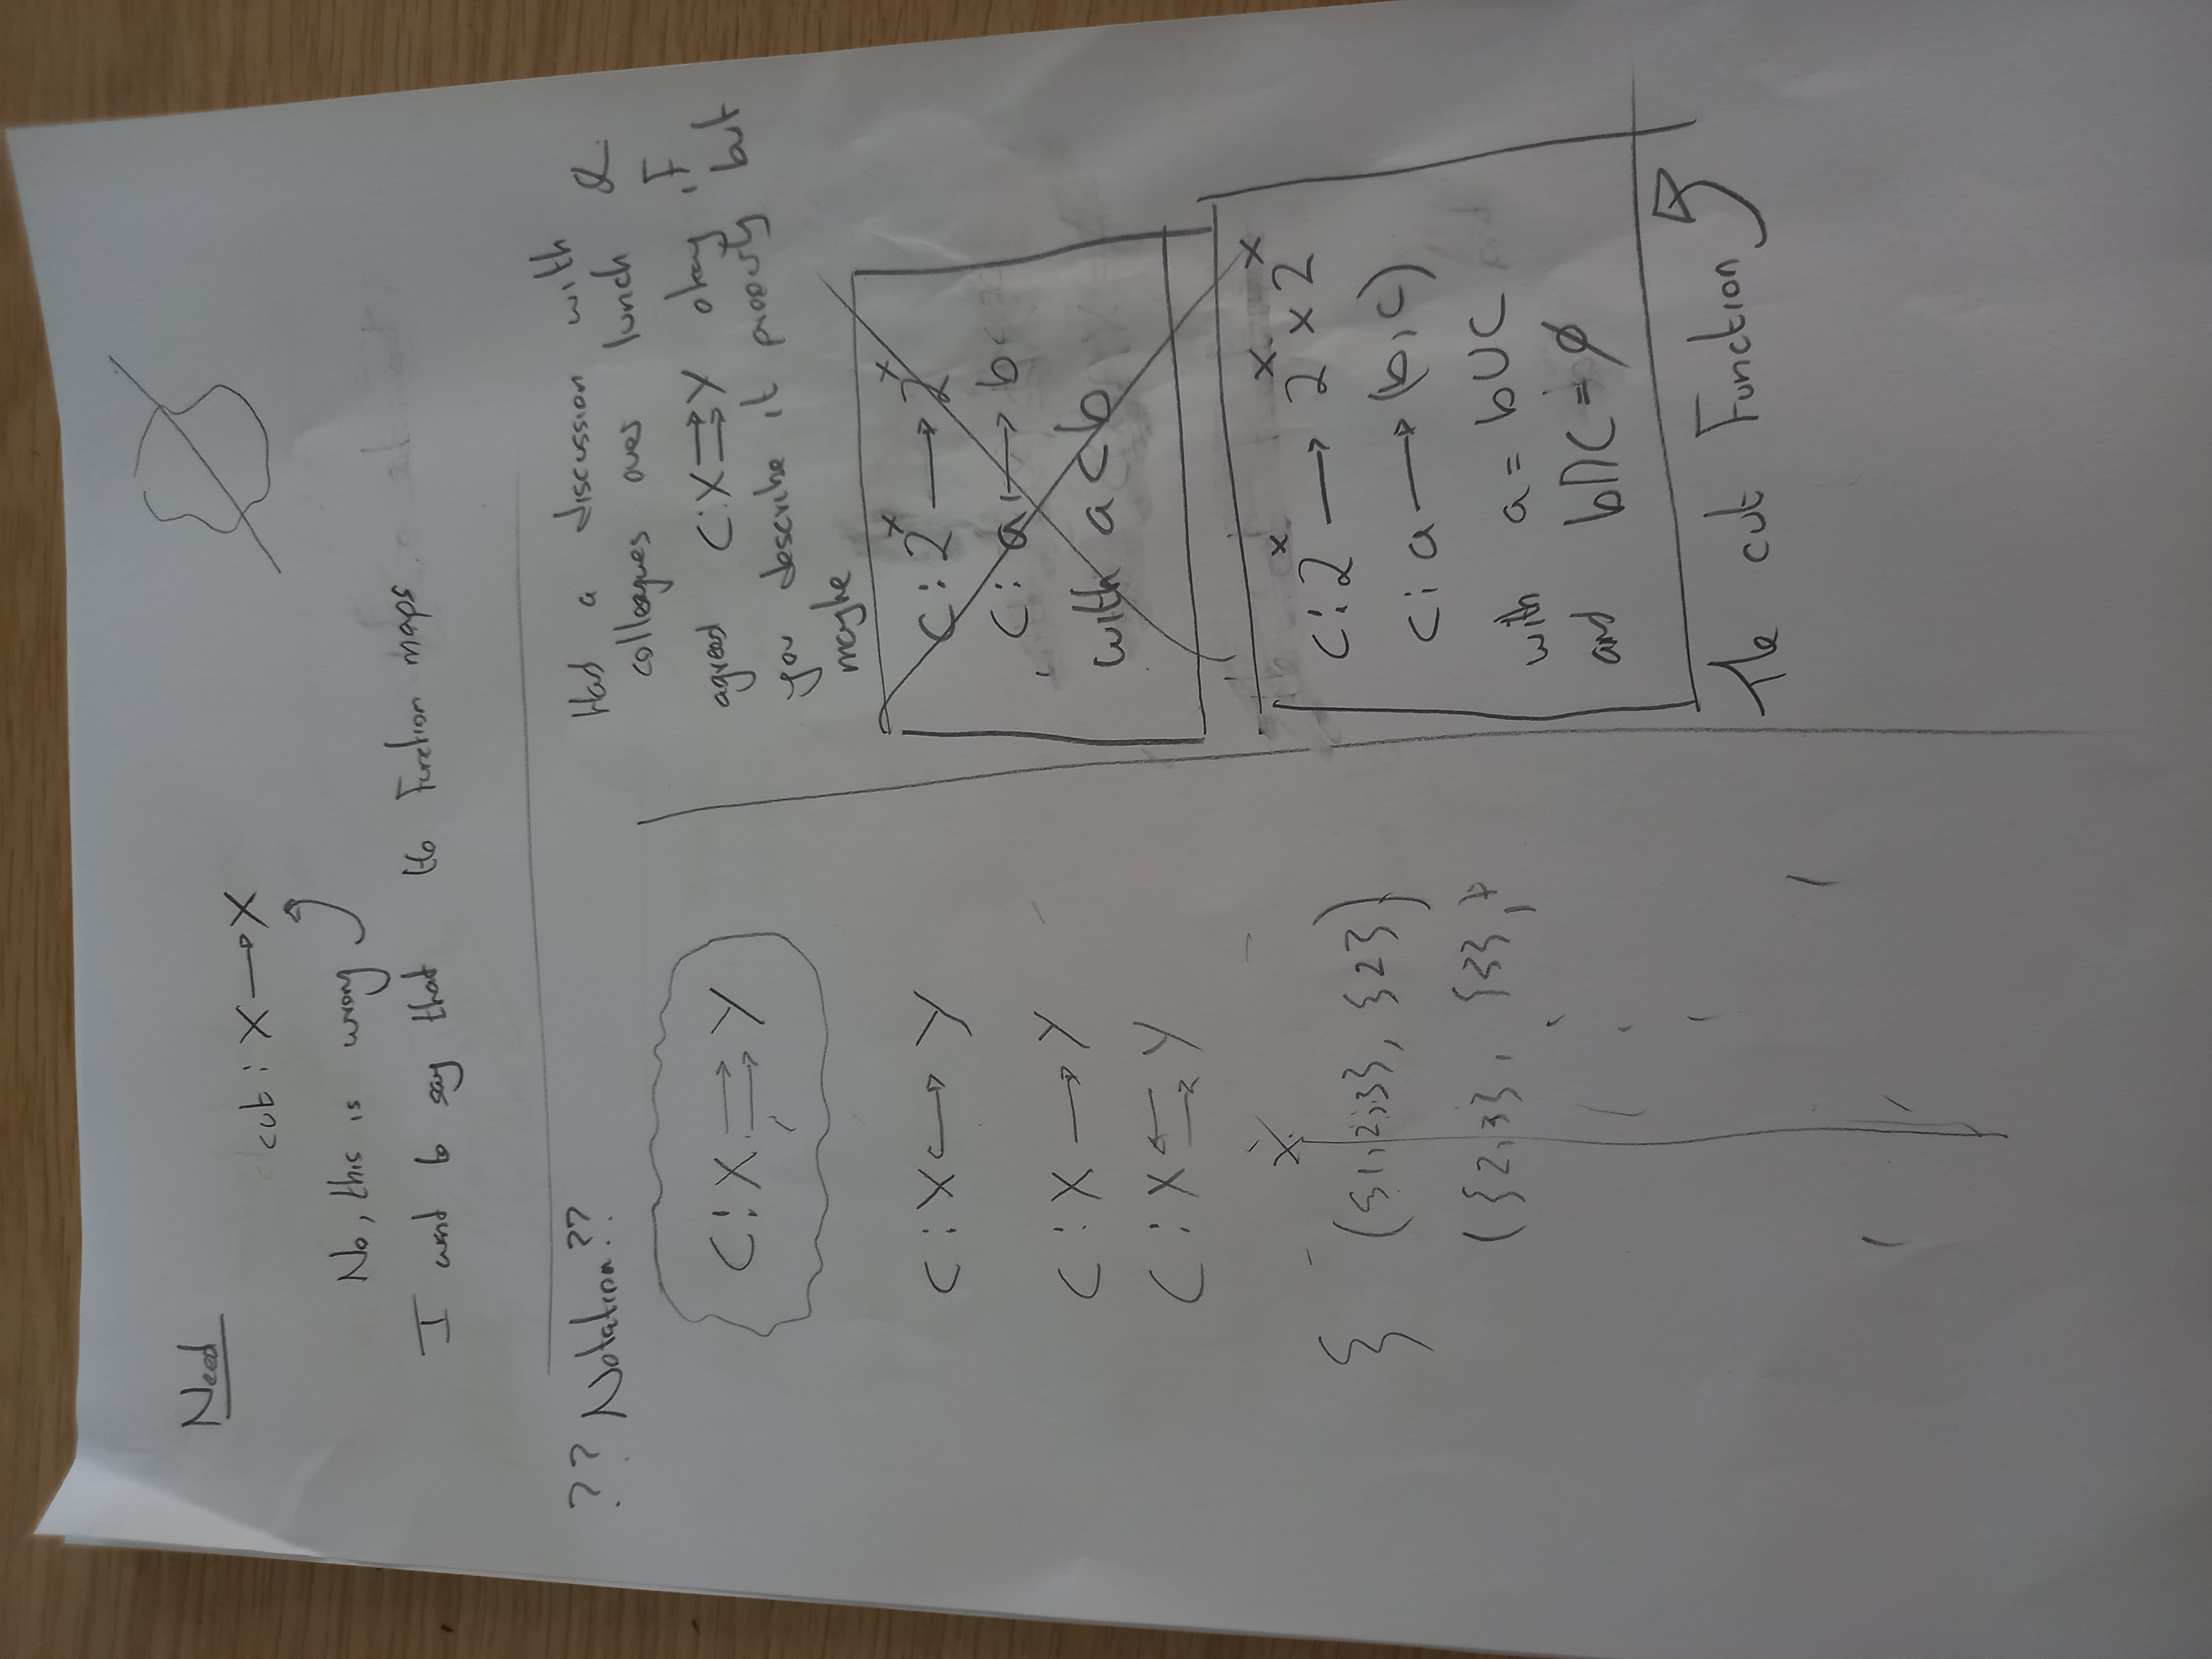 Need
cut : X → X
No, this is wrong
I want to say that the Function maps
?? Notation ??
C : X ⇉ Y
C : X ↔ Y
C : X → Y
C : X ⇆ Y
X
{ ({1,2,3}, {2})
({2,3}, {3},
Had a discussion with
colleagues over lunch &
agreed C:X⇉Y okay if
you describe it properly but
maybe
C : 2^X → 2^X
C : a ↦ b
with a ⊂ b
C : 2^X → 2^X × 2^X
C : a → (b, c)
with a = b∪c
and b∩c = ∅
The cut Function